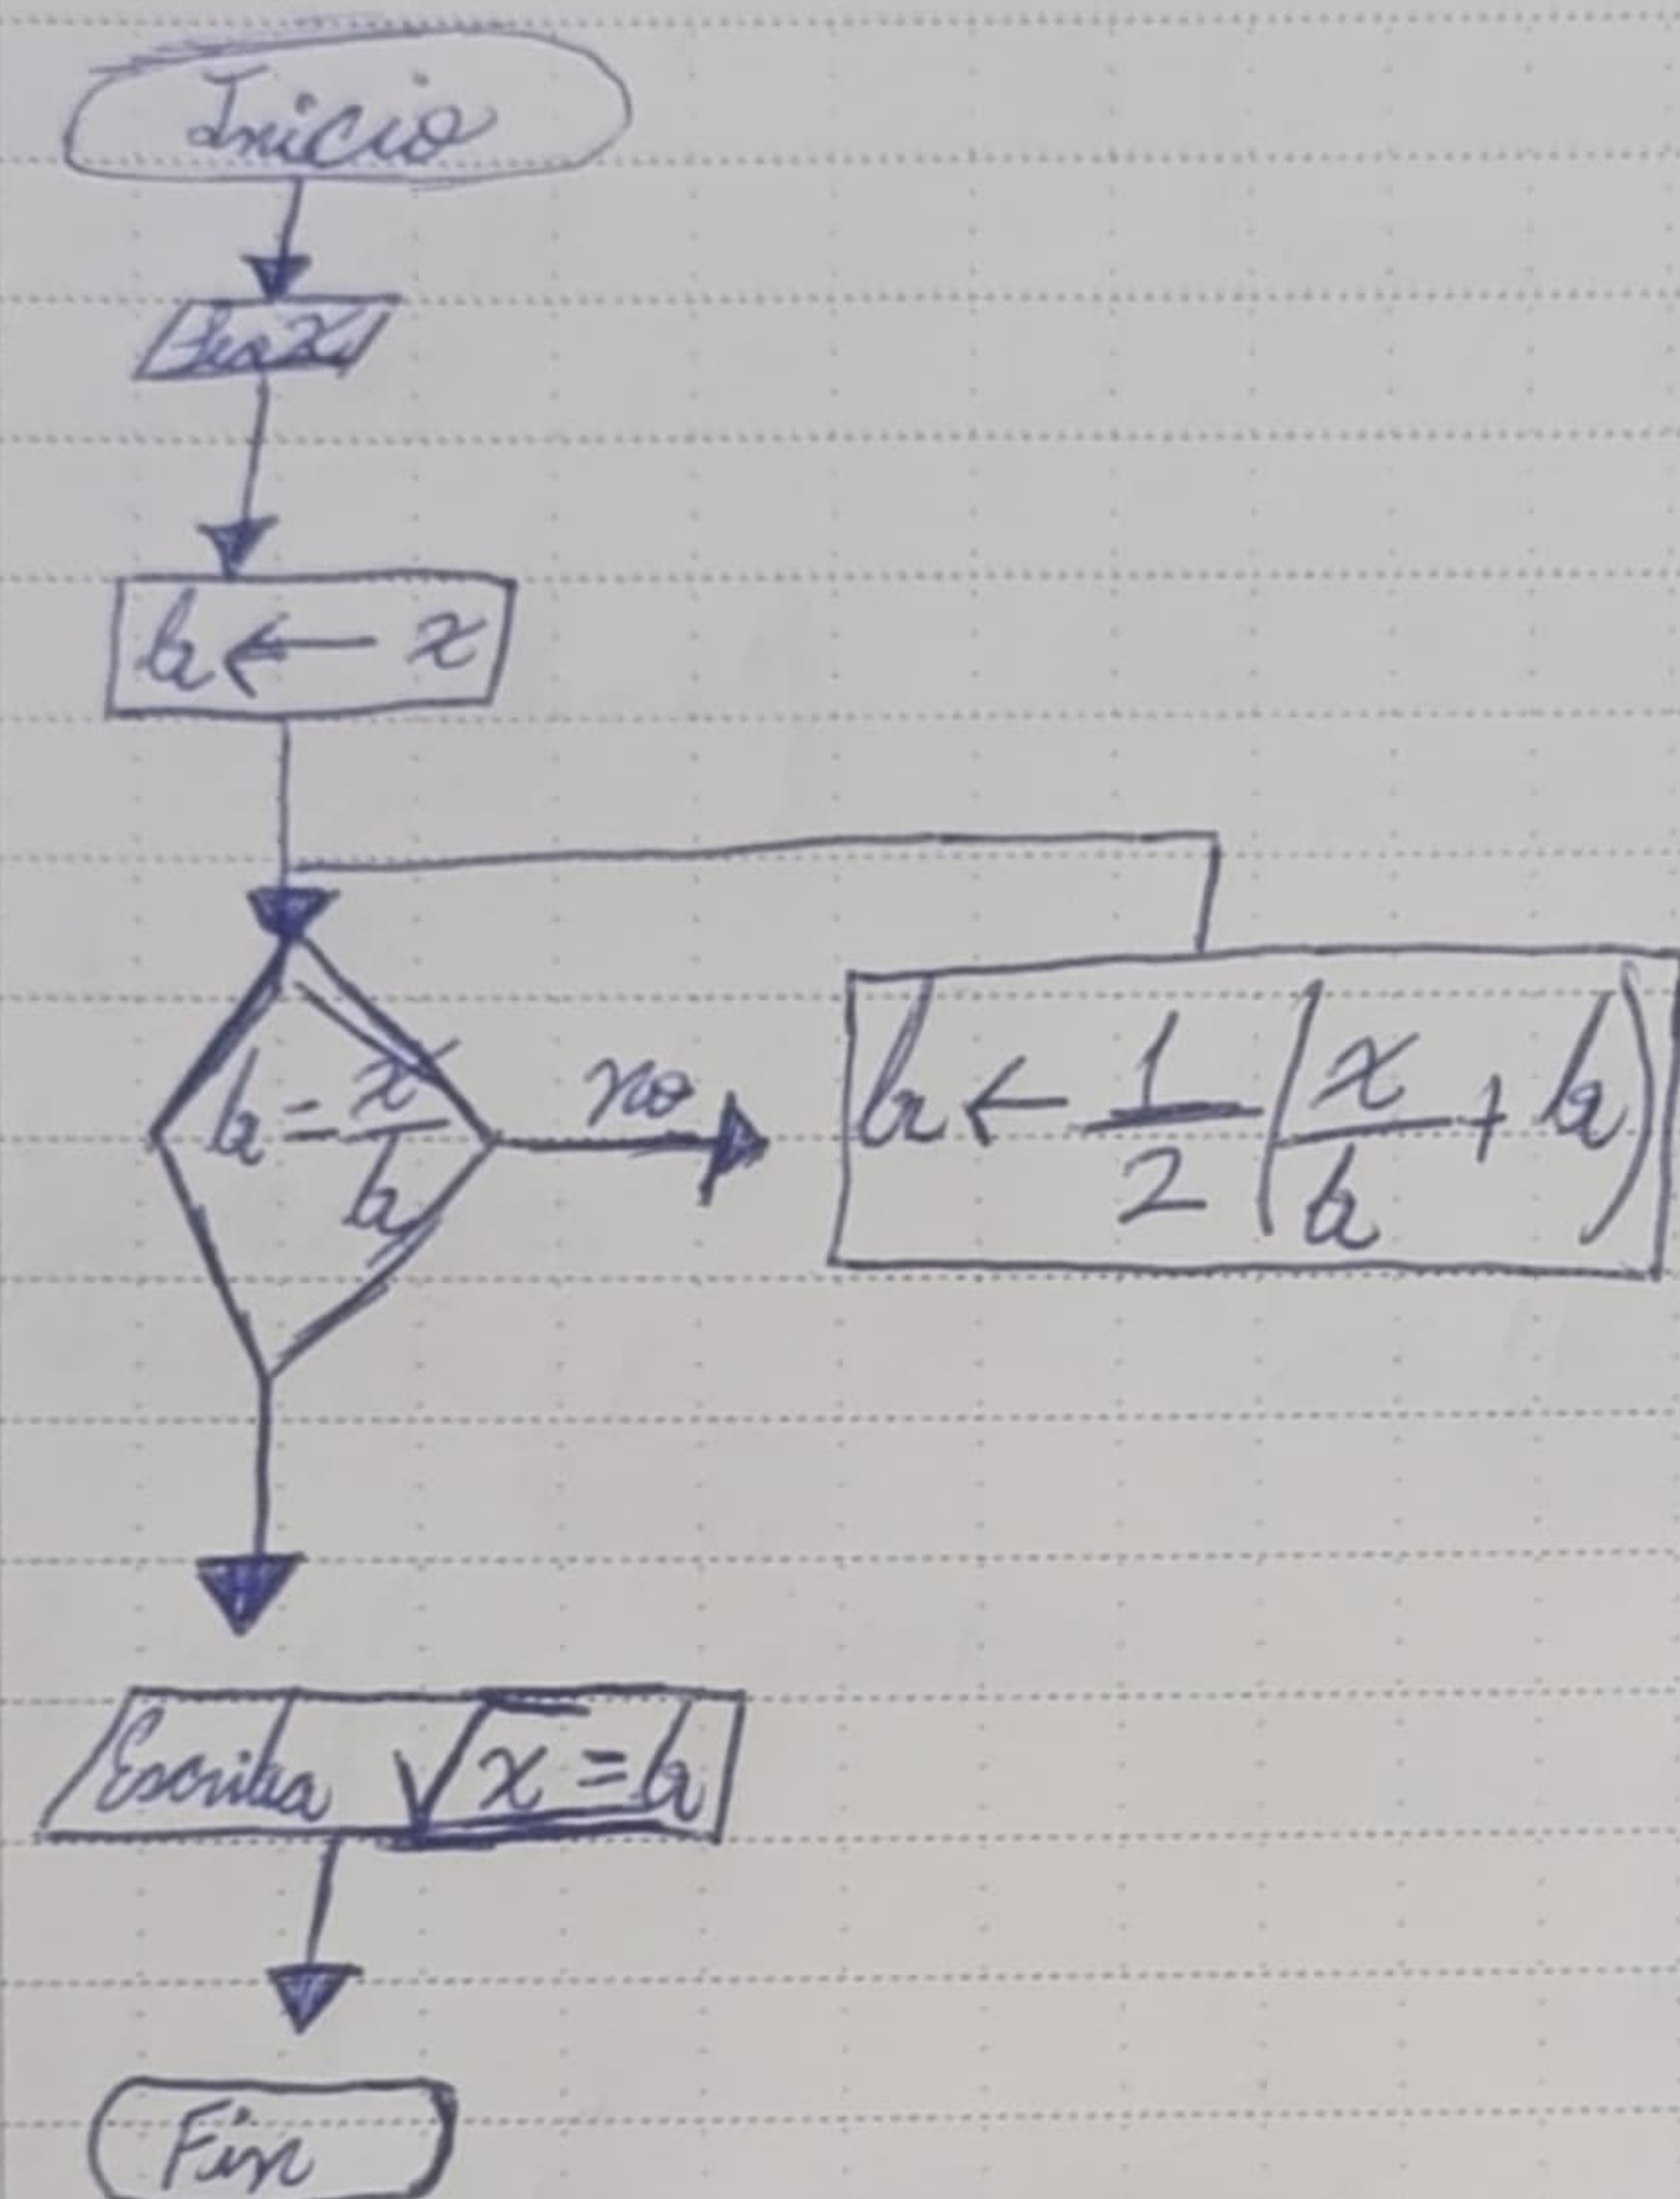 Inicio
Lea x
b ← x
b = x/b
no
b ← 1/2 (x/b + b)
Escriba √x = b
Fin